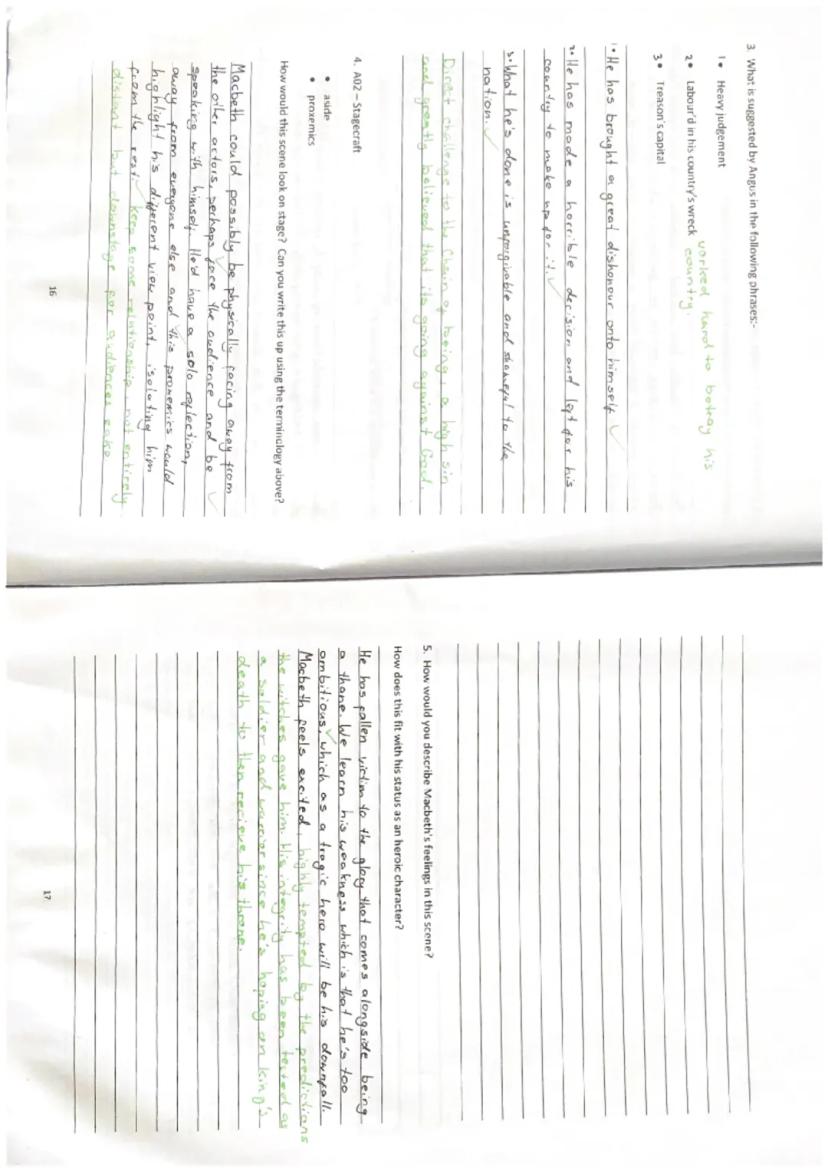 3. What is suggested by Angus in the following phrases:-
1• Heavy judgement
2• Labour'd in his country's wreck worked hard to betray his
country.
3• Treason's capital
1• He has brought a great dishonour onto himself ✓
2• He has made a horrible decision and left for his
country to make up for it. ✓
3• What he's done is unforgivable and shameful to the
nation. ✓
Direct challenge to the Chain of being, a high sin
and greatly believed that its going against God.
4. A02 – Stagecraft
• aside
• proxemics
How would this scene look on stage? Can you write this up using the terminology above?
Macbeth could possibly be physically facing away from
the other actors, perhaps face the audience and be ✓
speaking with himself. He'd have a solo reflection,
away from everyone else and this proxemics would
highlight his different view point, isolating him
from the rest. ✓ keep some relationship, not entirely
distant but downstage for audiences sake.
16
5. How would you describe Macbeth's feelings in this scene?
How does this fit with his status as an heroic character?
He has fallen victim to the glory that comes alongside being
a thane. We learn his weakness which is that he's too
ambitious, which as a tragic hero will be his downfall.
Macbeth feels excited, highly tempted by the predictions
the witches gave him. His integrity has been tested as
a soldier and warrior since he's hoping on king's
death to then recieve his throne.
17